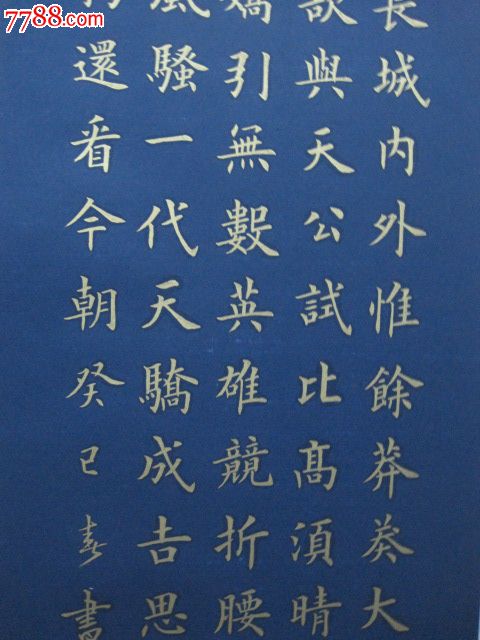 7788.com
中国收藏热线
長城内外惟餘莽莽大
欲與天公試比髙須晴
嬌引無數英雄競折腰
風騷一代天驕成吉思
還看今朝癸巳春書